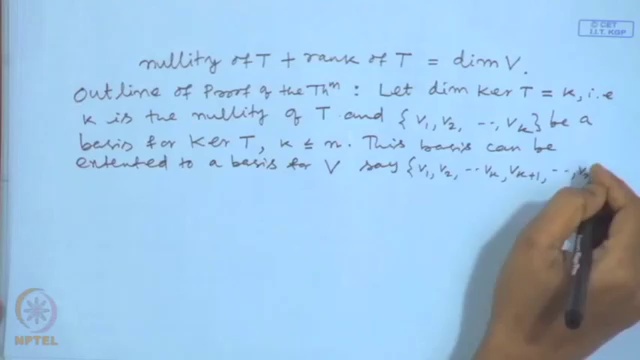 © CET
I.I.T. KGP
nullity of T + rank of T = dim V.
Outline of Proof of the Thm : Let dim Ker T = k, i.e
k is the nullity of T and {v1, v2, ..., vk} be a
basis for Ker T, k ≤ n. This basis can be
extented to a basis for V say {v1, v2, ... vk, vk+1, ..., vn
NPTEL